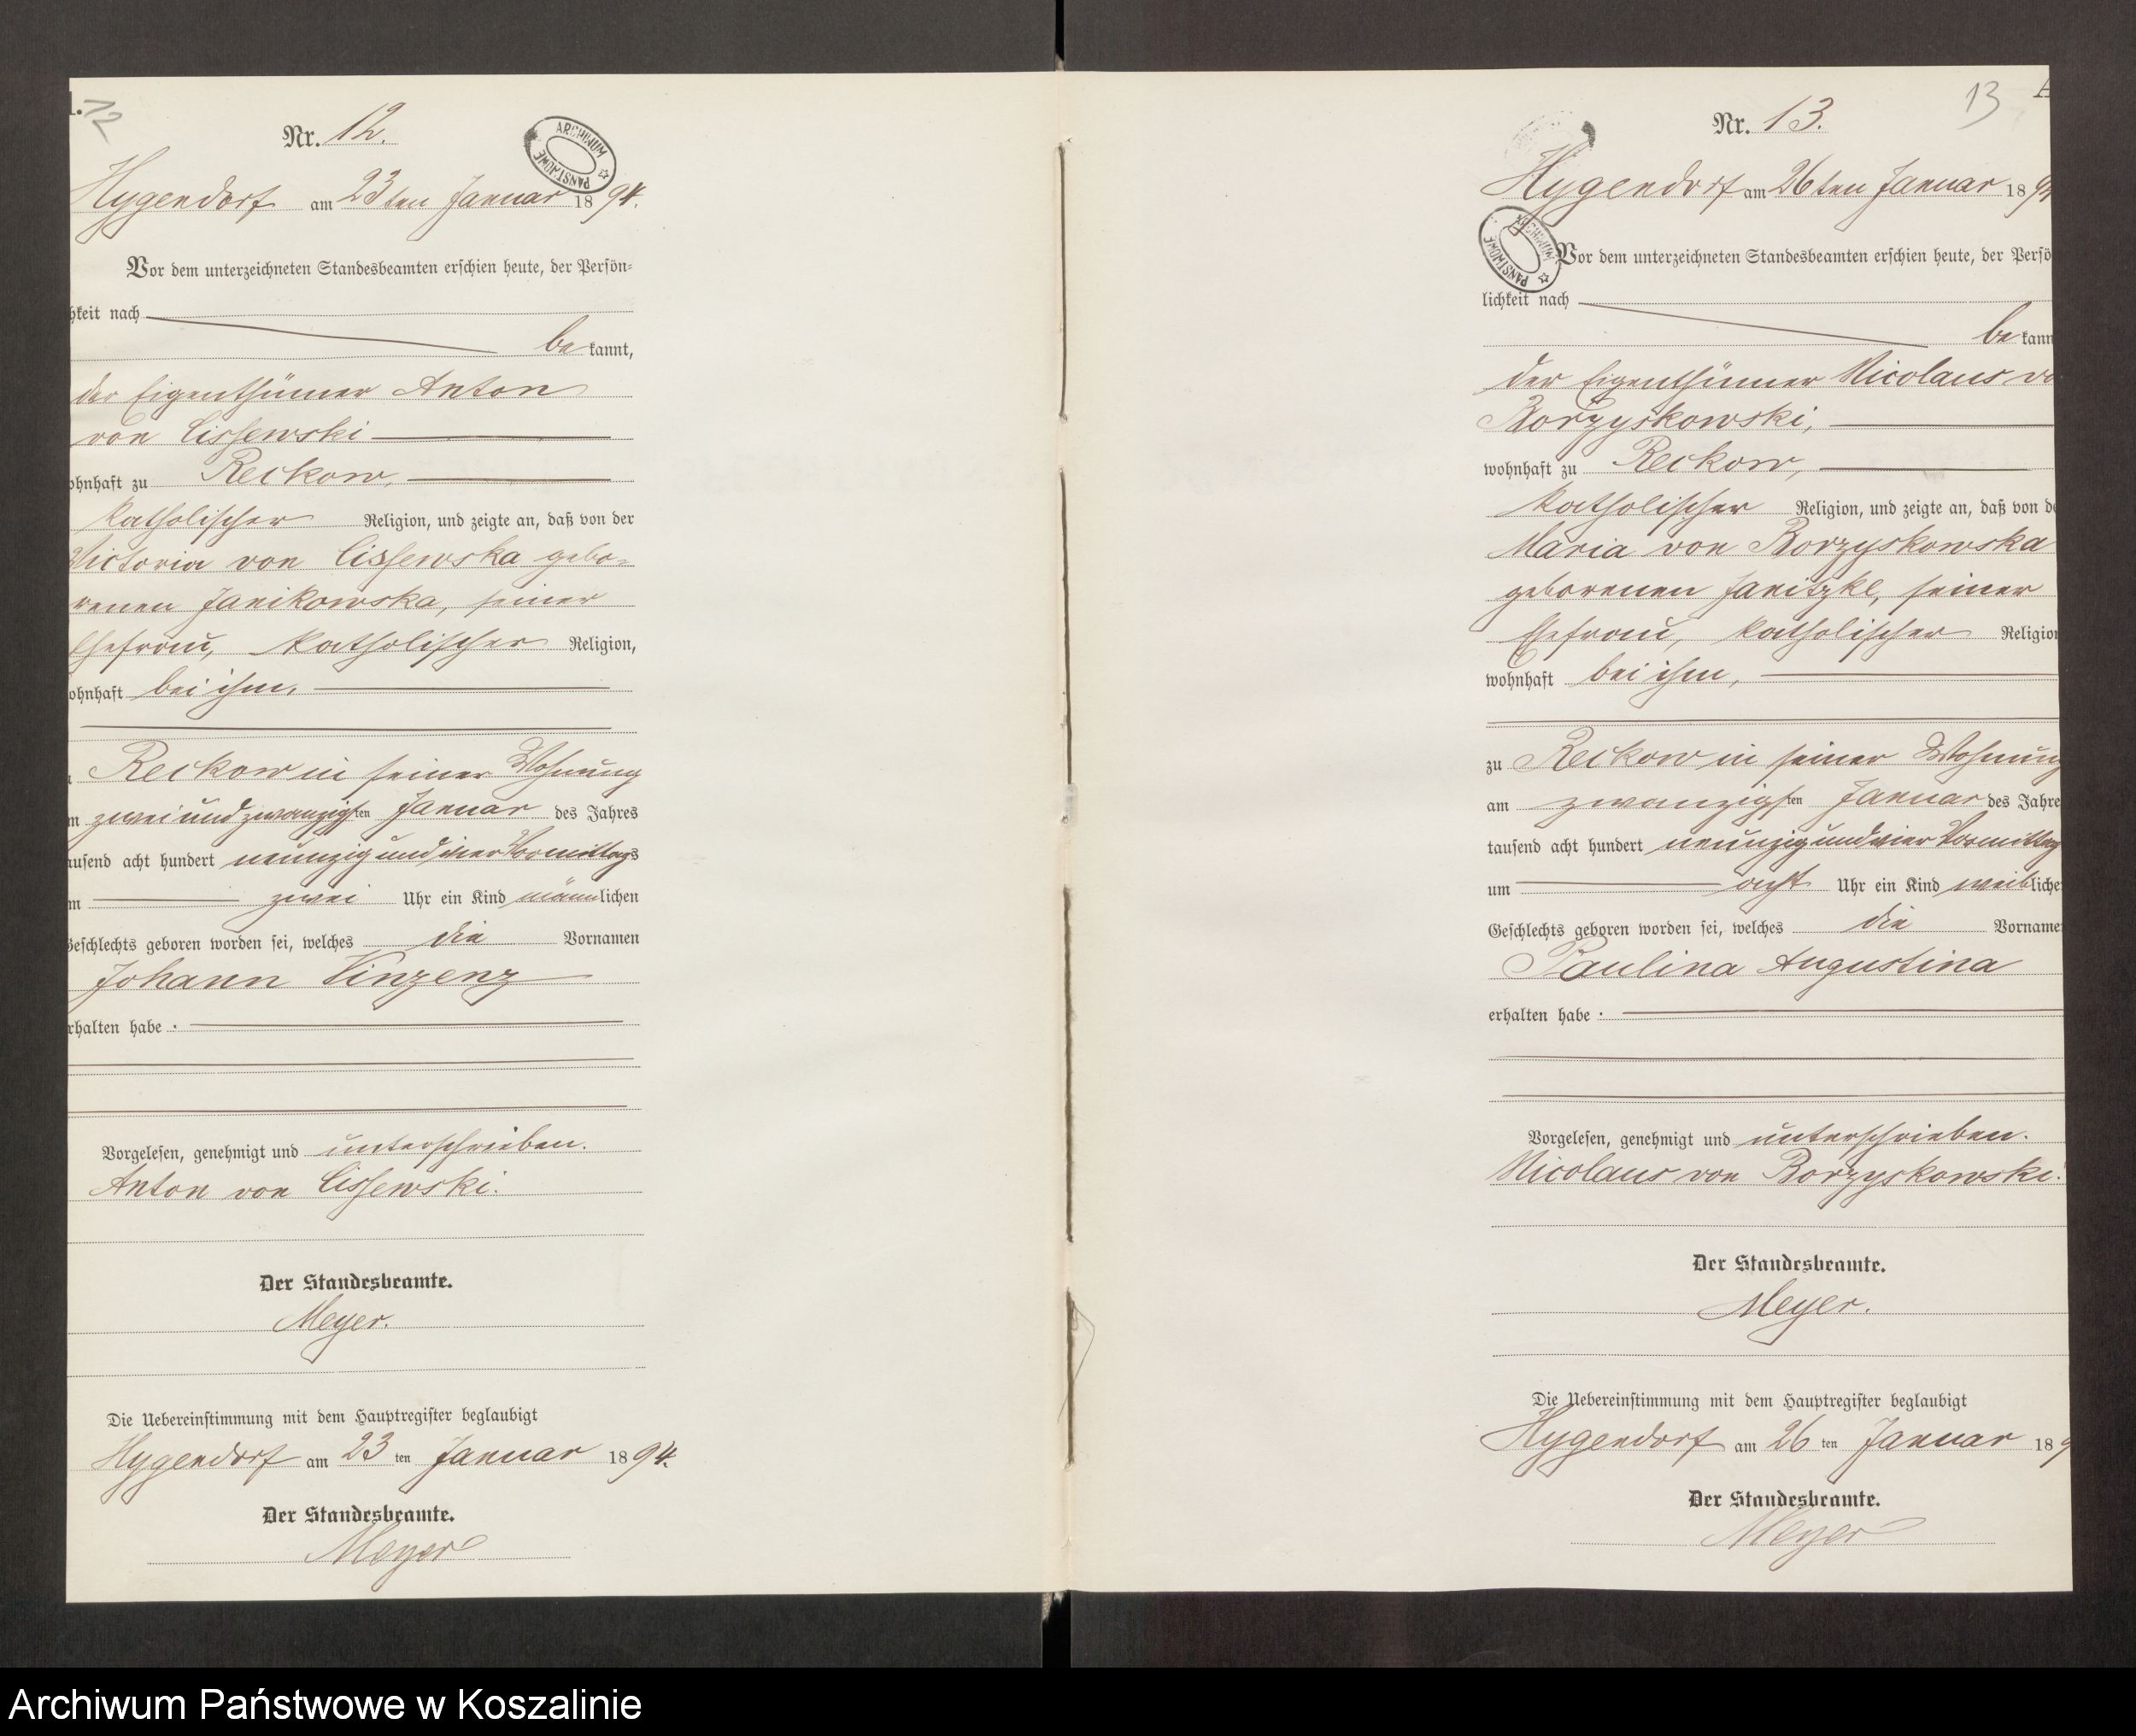 12
Nr. 12.
ARCHIWUM PAŃSTWOWE
Hygendorf am 23ten Januar 1894.
Vor dem unterzeichneten Standesbeamten erschien heute, der Persön-
hkeit nach
bekannt,
der Eigenthümer Anton
von Cissewski
ohnhaft zu Reckow,
katholischer Religion, und zeigte an, daß von der
Victoria von Cissewska gebo-
renen Janikowska, seiner
Ehefrau, katholischer Religion,
ohnhaft bei ihm,
Reckow in seiner Wohnung
m zwei und zwanzigsten Januar des Jahres
ausend acht hundert neunzig und vier Vormittags
m zwei Uhr ein Kind männlichen
Geschlechts geboren worden sei, welches die Vornamen
Johann Vinzenz
rhalten habe.
Vorgelesen, genehmigt und unterschrieben.
Anton von Cissewski.
Der Standesbeamte.
Meyer.
Die Uebereinstimmung mit dem Hauptregister beglaubigt
Hygendorf am 23 ten Januar 1894.
Der Standesbeamte.
Meyer
13
Nr. 13.
Hygendorf am 26ten Januar 189
ARCHIWUM PAŃSTWOWE
Vor dem unterzeichneten Standesbeamten erschien heute, der Persö
lichkeit nach
bekann
der Eigenthümer Nicolaus vo
Borzyskowski,
wohnhaft zu Reckow,
katholischer Religion, und zeigte an, daß von de
Maria von Borzyskowska
geborenen Janitzke, seiner
Ehefrau, katholischer Religion
wohnhaft bei ihm,
zu Reckow in seiner Wohnung
am zwanzigsten Januar des Jahre
tausend acht hundert neunzig und vier Vormittag
um acht Uhr ein Kind weibliche
Geschlechts geboren worden sei, welches die Vorname
Paulina Augustina
erhalten habe.
Vorgelesen, genehmigt und unterschrieben.
Nicolaus von Borzyskowski.
Der Standesbeamte.
Meyer.
Die Uebereinstimmung mit dem Hauptregister beglaubigt
Hygendorf am 26 ten Januar 189
Der Standesbeamte.
Meyer
Archiwum Państwowe w Koszalinie